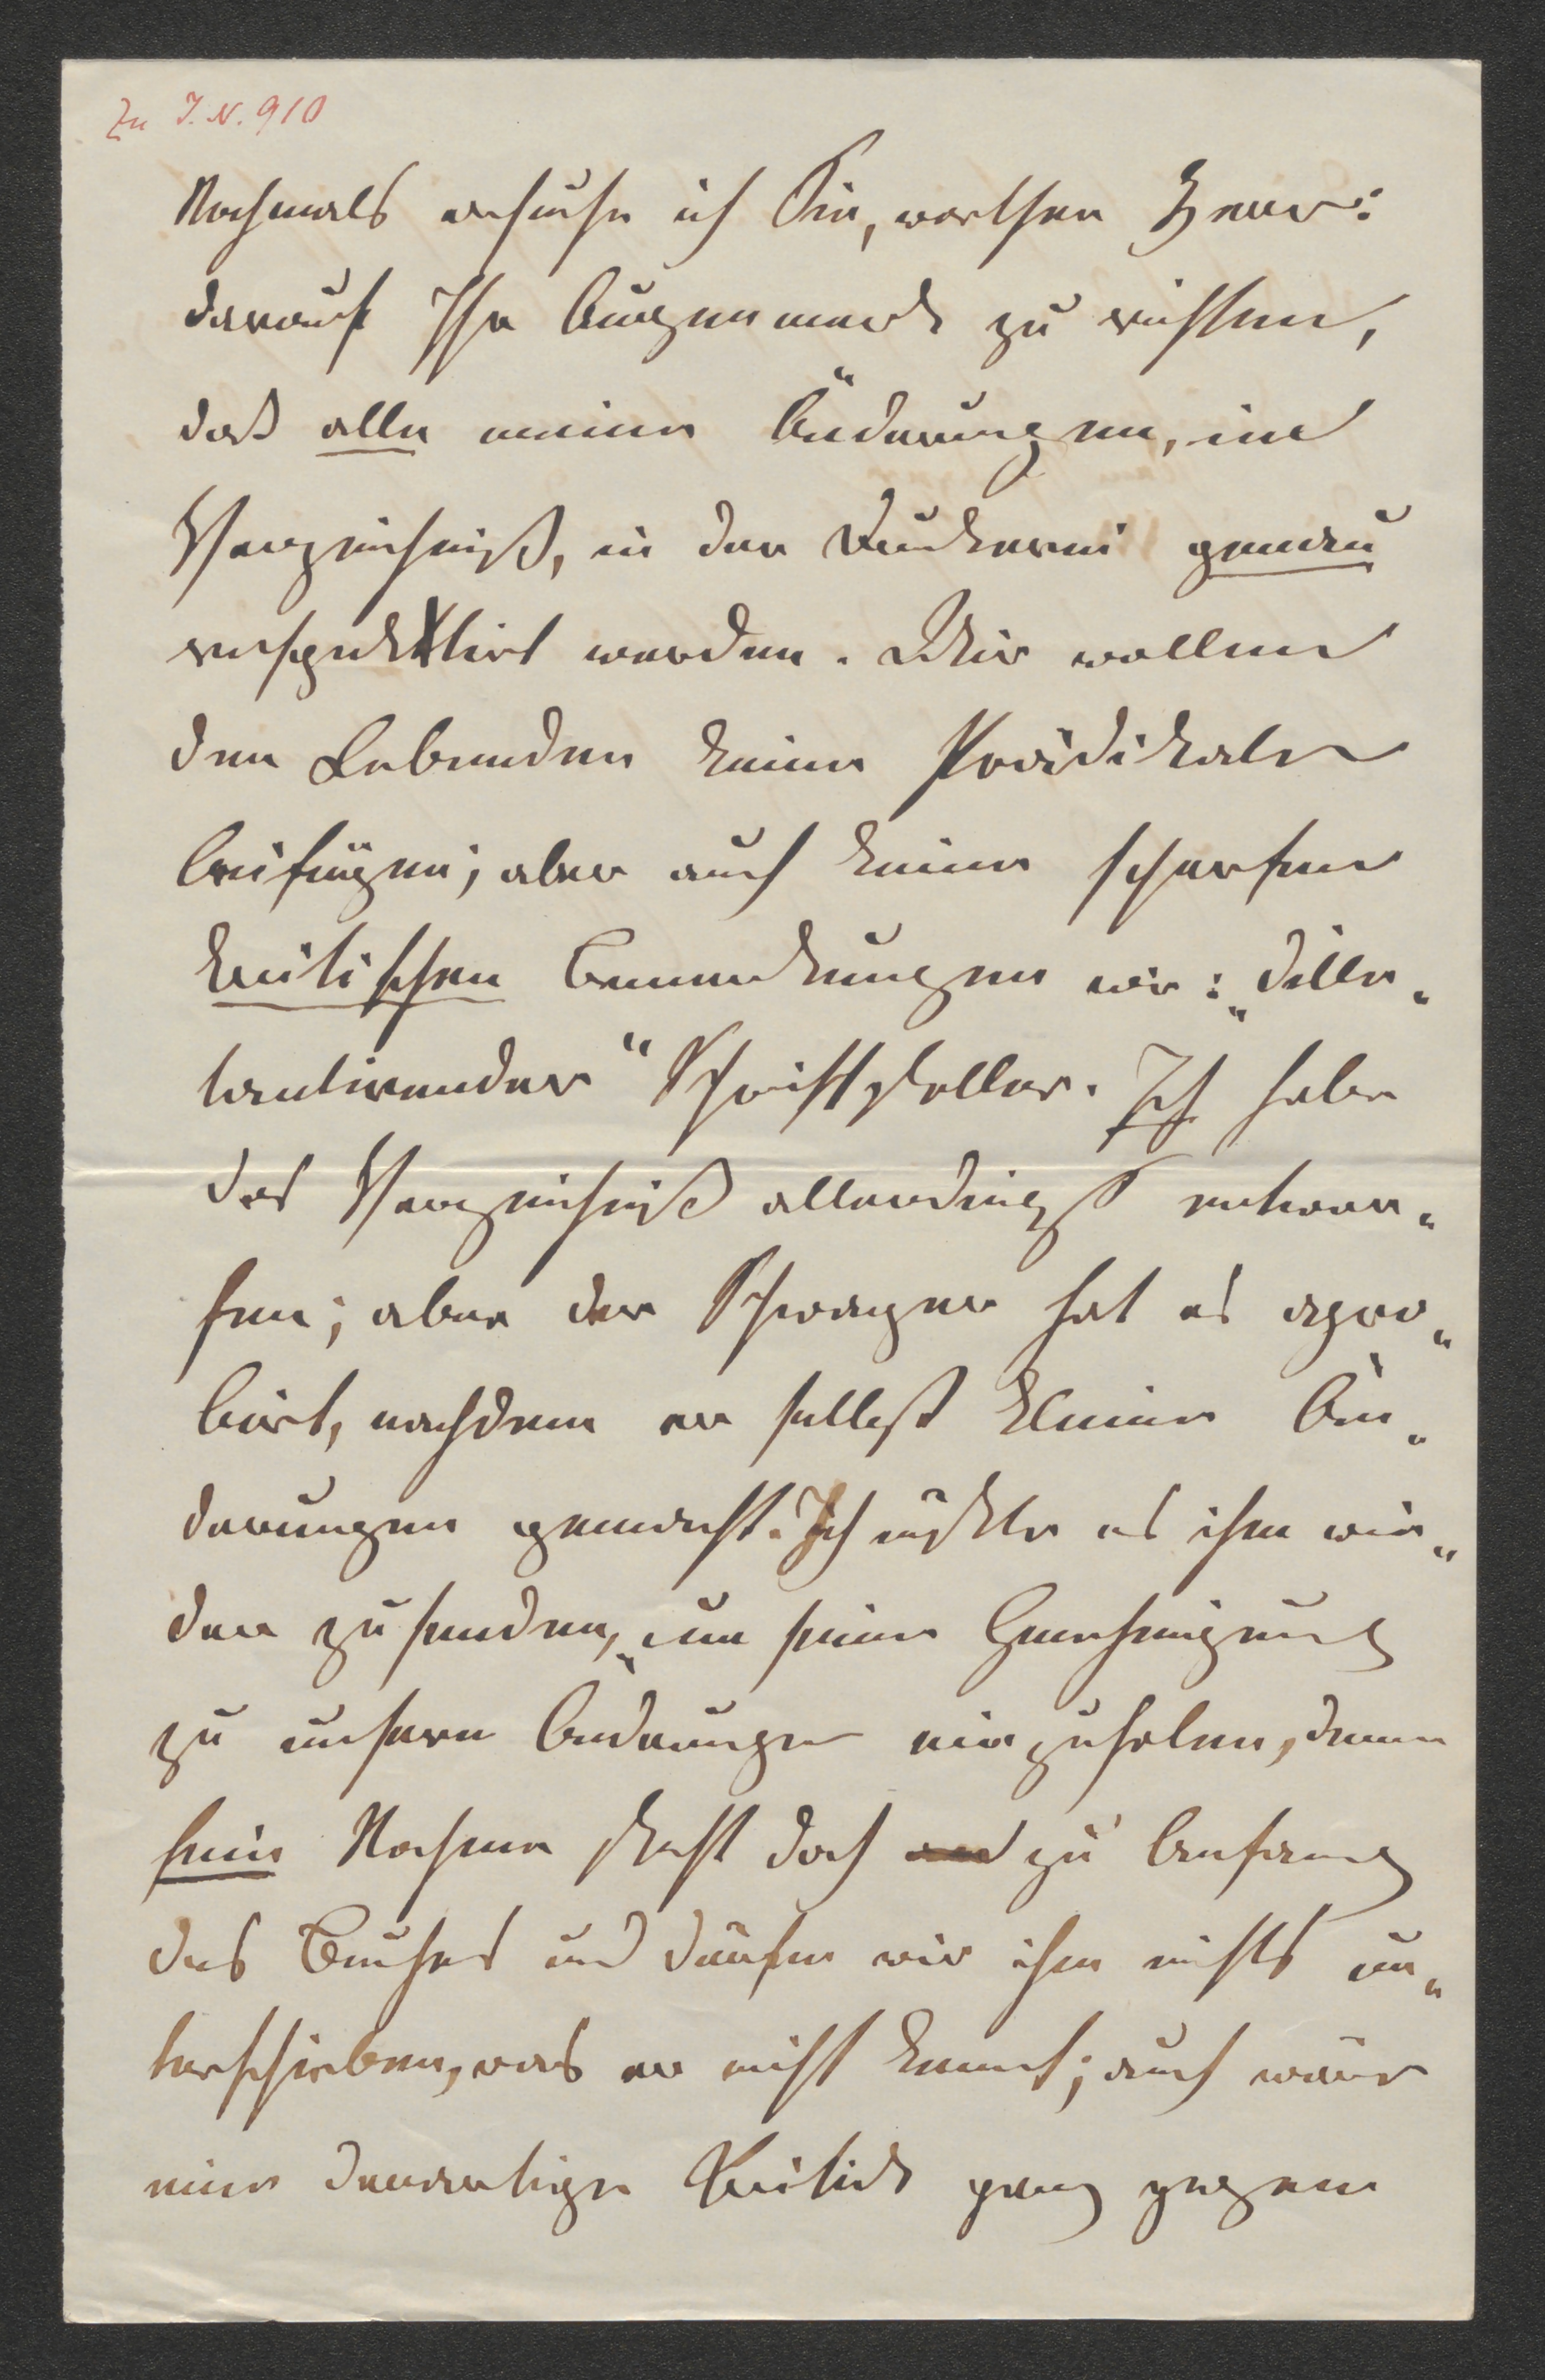 Zu I.N. 910
Nochmals ersuche ich Sie, werther Herr:
darauf Ihr Augenmerk zu richten,
daß alle meine Änderungen, im
Verzeichniß, in der Druckerei genau
respektirt werden. Wir wollen
den Lebenden keine Prädikate
beifügen; aber auch keine scharfen
kritischen Bemerkungen wie: „dille„
tantirender“ Schriftsteller. Ich habe
das Verzeichniß allerdings entwor„
fen; aber der Schwager hat es apro„
birt, nachdem er selbst kleine Än„
derungen gemacht. Ich mußte es ihm wie„
der zu senden, um seine Genehmigung
zu unsern Änderungen einzuholen, denn
sein Nahme steht doch zu Anfang
des Buches und dürfen wir ihm nichts un„
terschieben, was er nicht kennt; auch wäre
eine derartige Kritik ganz gegen